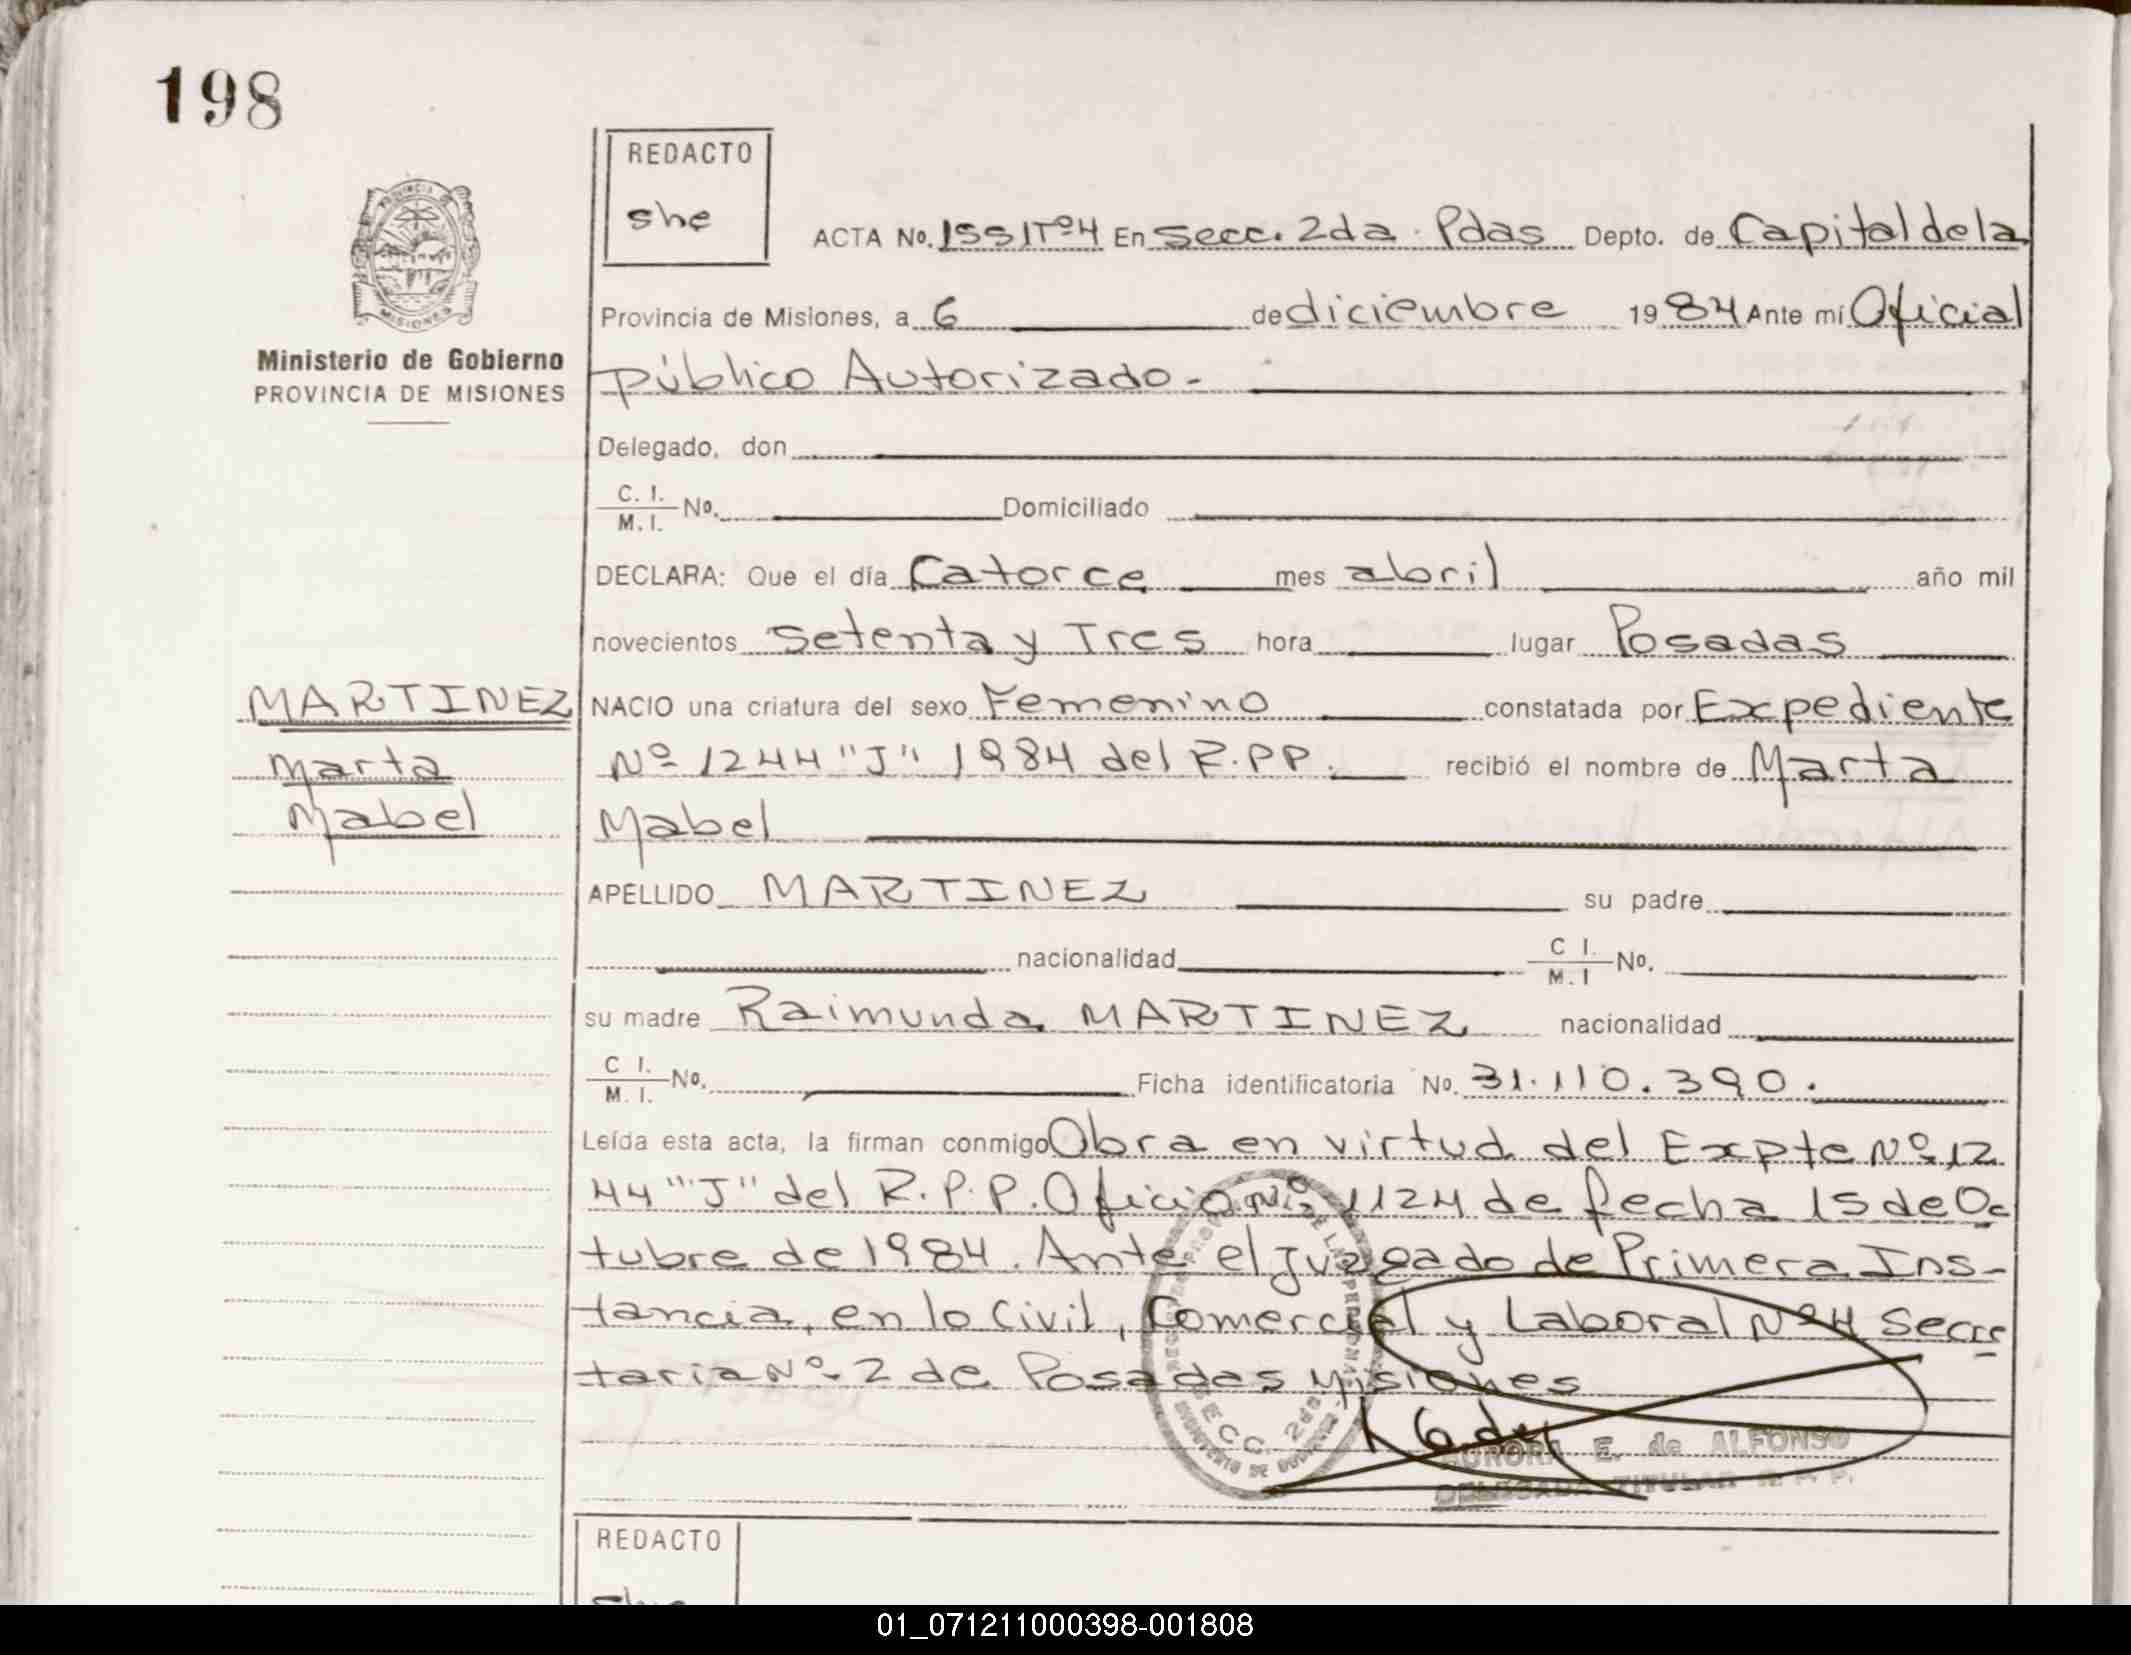 198
REDACTO
she
ACTA No. 1551Tº4 En Secc. 2da. Pdas Depto. de Capital de la
Provincia de Misiones, a 6 de diciembre 1984 Ante mí Oficial
Ministerio de Gobierno
PROVINCIA DE MISIONES
público Autorizado-
Delegado, don
C. I.
M. I. No. Domiciliado
DECLARA: Que el día Catorce mes abril año mil
novecientos Setenta y Tres hora lugar Posadas
MARTINEZ
Marta
Mabel
NACIO una criatura del sexo Femenino constatada por Expediente
Nº 1244 "J" 1984 del R.P.P. recibió el nombre de Marta
Mabel
APELLIDO MARTINEZ su padre
nacionalidad C I.
M. I No.
su madre Raimunda MARTINEZ nacionalidad
C I.
M. I. No. Ficha identificatoria No. 31.110.390.
Leída esta acta, la firman conmigo Obra en virtud del Expte Nº 12
44 "J" del R.P.P. Oficio Nº 1124 de fecha 15 de Oc
tubre de 1984. Ante el Juzgado de Primera Ins-
tancia, en lo Civil, Comercial y Laboral Nº 4 Secre
taria Nº 2 de Posadas Misiones
SECC. 2da
AURORA E. de ALFONSO
DELEGADA TITULAR R. P. P.
REDACTO
01_071211000398-001808